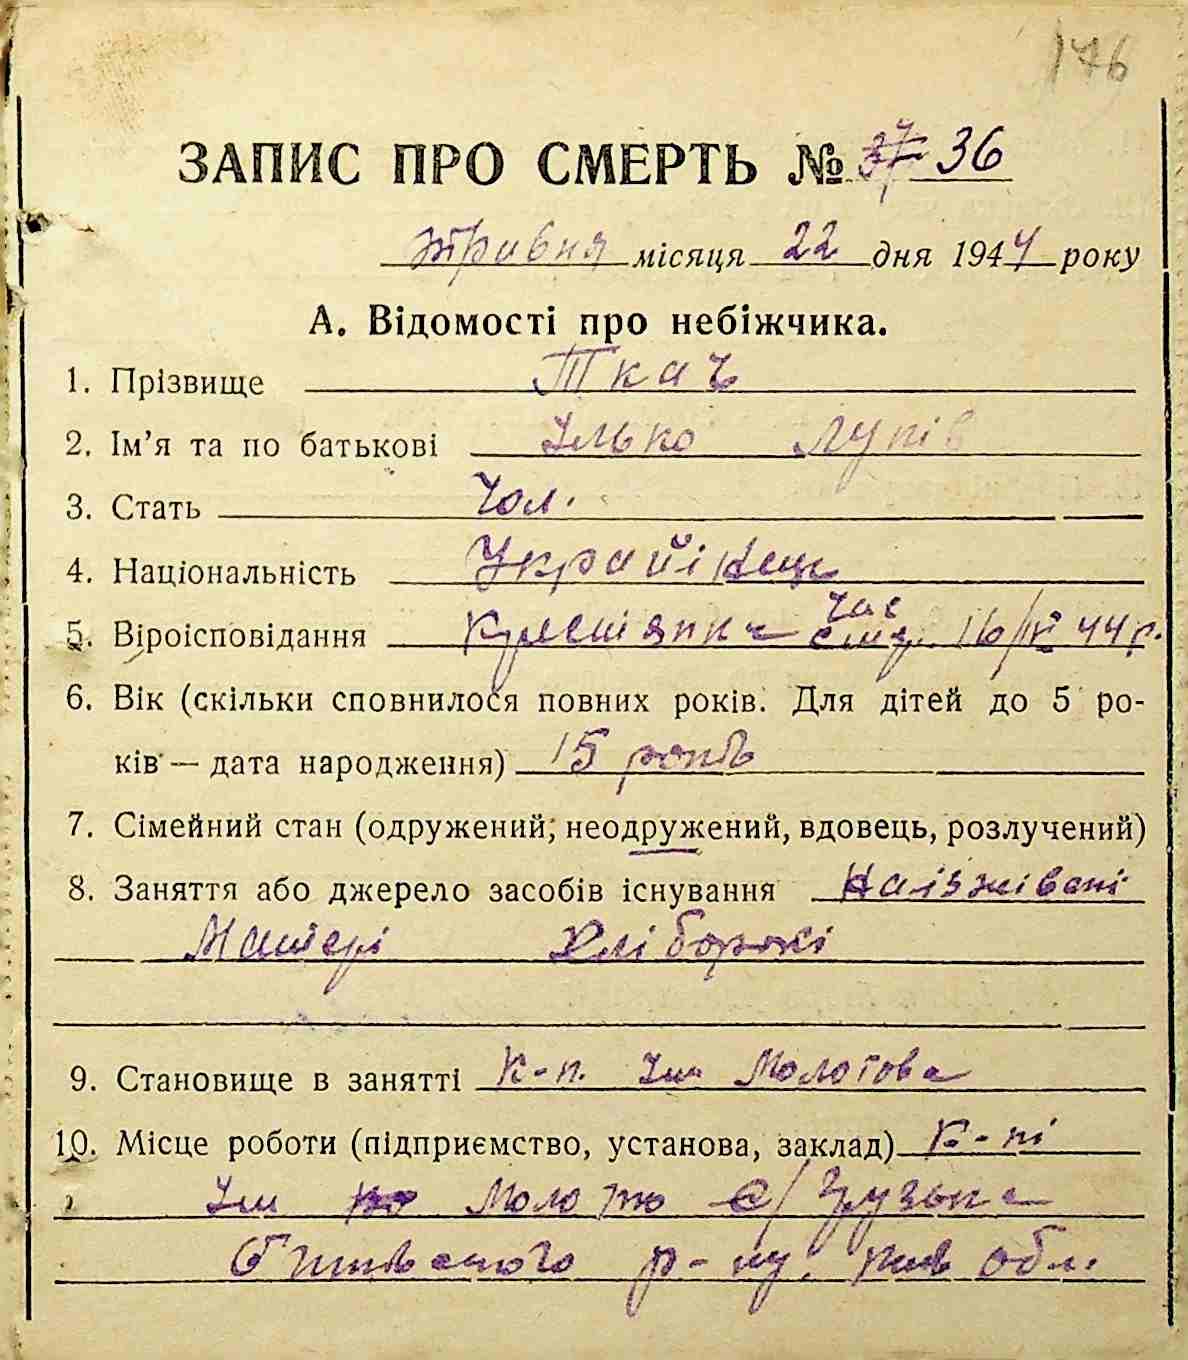 176
ЗАПИС ПРО СМЕРТЬ № 37 36
Травня місяця 22 дня 1944 року
А. Відомості про небіжчика.
1. Прізвище Ткач
2. Ім'я та по батькові Ілько Лупів
3. Стать Чол.
4. Національність Українець
час
5. Віроісповідання смер. 16/IV 44 г.
6. Вік (скільки сповнилося повних років. Для дітей до 5 ро-
ків — дата народження) 15 років
7. Сімейний стан (одружений, неодружений, вдовець, розлучений)
8. Заняття або джерело засобів існування
Матері Хліборобкі
9. Становище в занятті К-п. Ім Молотова
10. Місце роботи (підприємство, установа, заклад) К-пі
Ім Молото с/Грузьке
р-ну. Київ обл.